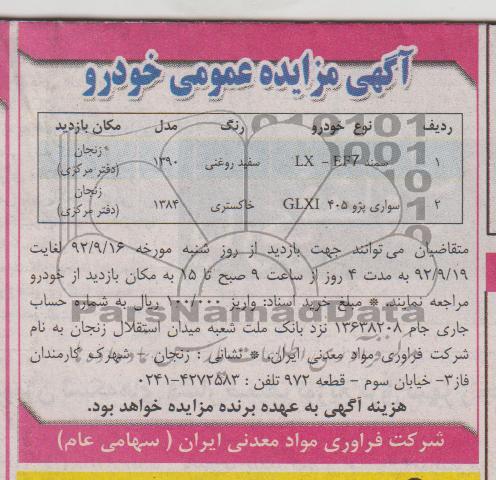 آگهی مزایده عمومی خودرو
ردیف نوع خودرو رنگ مدل مکان بازدید
۱ سمند LX - EF7 سفید روغنی ۱۳۹۰ زنجان (دفتر مرکزی)
۲ سواری پژو ۴۰۵ GLXI خاکستری ۱۳۸۴ زنجان (دفتر مرکزی)
متقاضیان می توانند جهت بازدید از روز شنبه مورخه ۹۲/۹/۱۶ لغایت
۹۲/۹/۱۹ به مدت ۴ روز از ساعت ۹ صبح تا ۱۵ به مکان بازدید از خودرو
مراجعه نمایند. * مبلغ خرید اسناد: واریز ۱۰۰/۰۰۰ ریال به شماره حساب
جاری جام ۱۳۶۳۸۲۰۸ نزد بانک ملت شعبه میدان استقلال زنجان به نام
شرکت فراوری مواد معدنی ایران. * نشانی : زنجان - شهرک کارمندان
فاز۳- خیابان سوم - قطعه ۹۷۲ تلفن : ۴۲۷۲۵۸۳-۰۲۴۱
هزینه آگهی به عهده برنده مزایده خواهد بود.
شرکت فراوری مواد معدنی ایران ( سهامی عام)
ParsNamadData